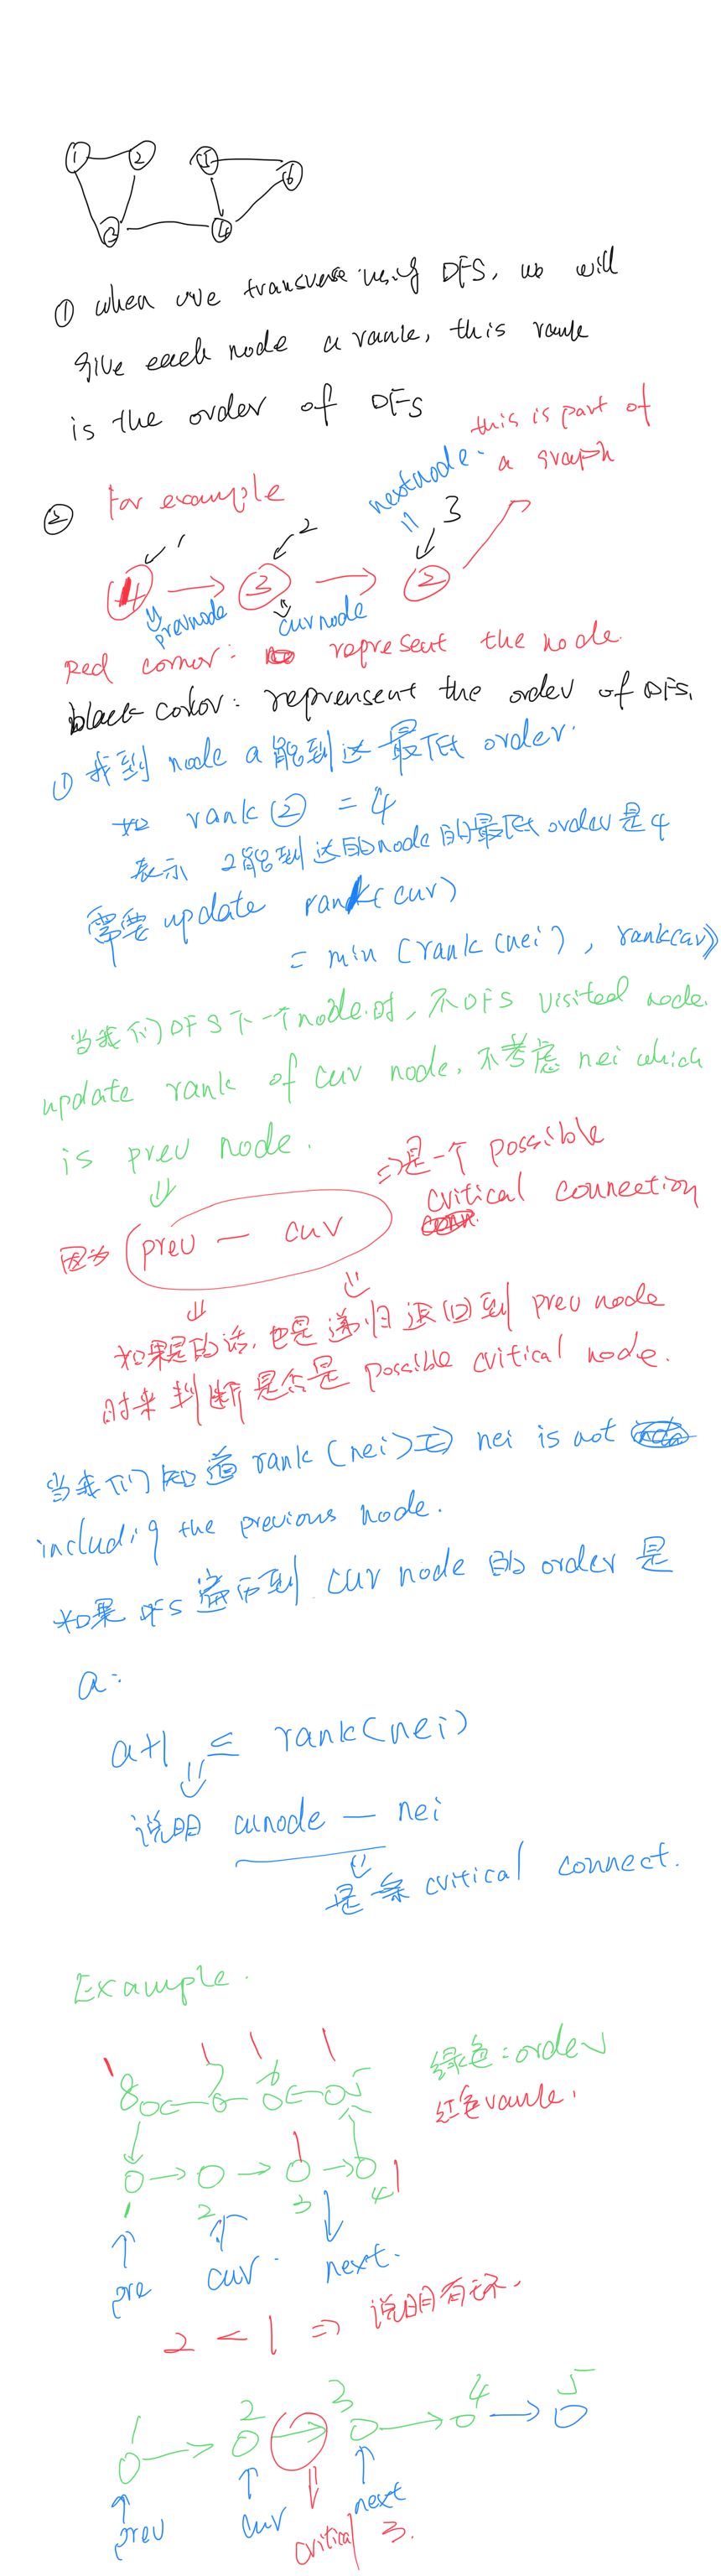 1 2 5 6
3 4
① when we transverse using DFS, we will
give each node a rank, this rank
is the order of DFS
this is part of
a graph
② For example
nextnode
1 2 3
4 3 2
prevnode
curnode
Red corner: represent the node.
black color: reprensent the order of DFS.
① 找到 node a能到达最低 order.
如 rank② = 4
表示 2能到达的node的最低order是4
需要update rank(cur)
= min (rank(nei), rank(cur))
当我们DFS下一个node时, 不DFS visited node.
update rank of cur node, 不考虑 nei which
is prev node.
因为 prev — cur
⇒是一个 possible
critical connection
如果是的话, 也是递归退回到 prev node
时来判断是否是 possible critical node.
当我们知道 rank(nei) nei is not
including the previous node.
如果 DFS 遍历到 cur node 的 order 是
a:
a+1 ≤ rank(nei)
说明 curnode — nei
是条 critical connect.
Example.
绿色: order
红色 rank.
1 1 1 1
8 7 6 5
1 1
1 2 3 4
pre cur next.
2 < 1 ⇒ 说明有环.
1 2 3 4 5
prev cur next
critical 3.